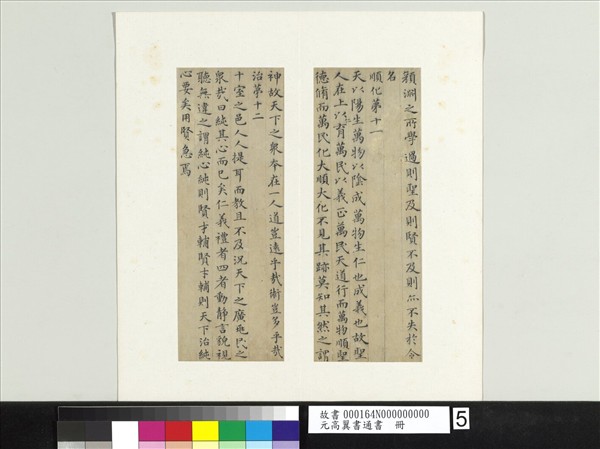 顏淵之所學過則聖及則賢不及則亦不失於令
名
順化第十一
天以陽生萬物以陰成萬物生仁也成義也故聖
人在上以育萬民以義正萬民天道行而萬物順聖
德脩而萬民化大順大化不見其跡莫知其然之謂
神故天下之衆本在一人道豈遠乎哉術豈多乎哉
治第十二
十室之邑人人提耳而教且不及況天下之廣兆民之
衆哉曰純其心而已矣仁義禮者四者動靜言貌視
聽無違之謂純心純則賢才輔賢才輔則天下治純
心要矣用賢急焉
故書 000164N000000000
元高翼書通書 冊
5